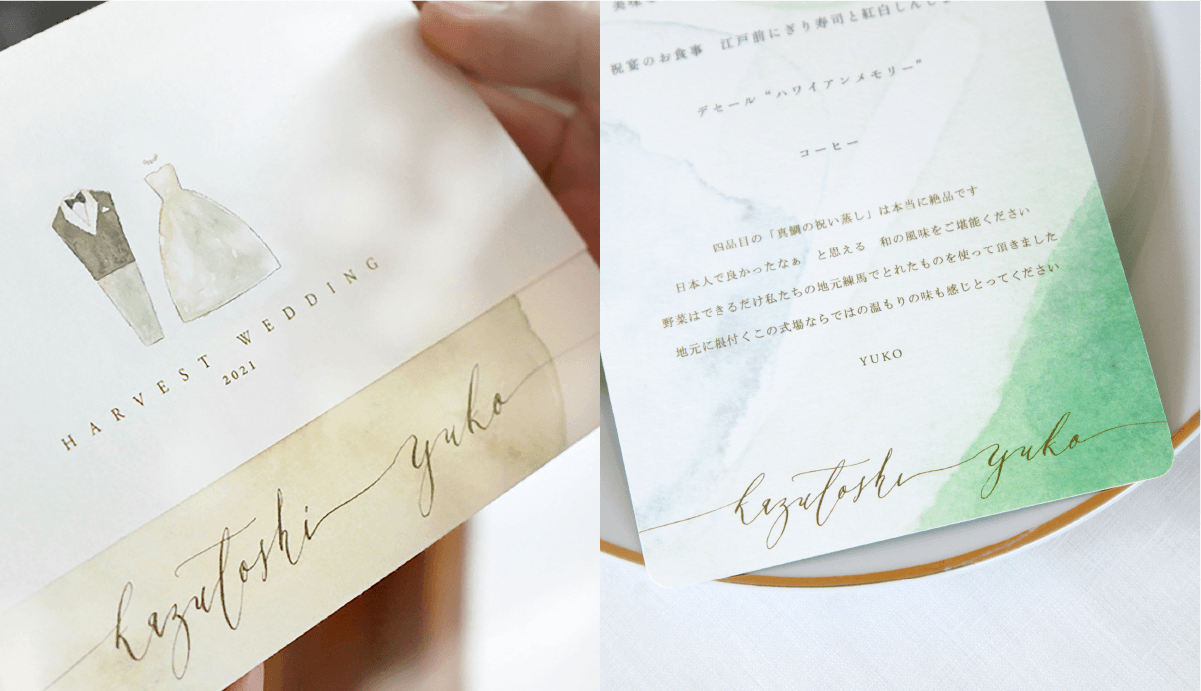 HARVEST WEDDING
2021
kazutoshi yuko
祝宴のお食事　江戸前にぎり寿司と紅白しんじょ
デセール “ハワイアンメモリー”
コーヒー
四品目の「真鯛の祝い蒸し」は本当に絶品です
日本人で良かったなぁ　と思える　和の風味をご堪能ください
野菜はできるだけ私たちの地元練馬でとれたものを使って頂きました
地元に根付くこの式場ならではの温もりの味も感じとってください
YUKO
kazutoshi yuko